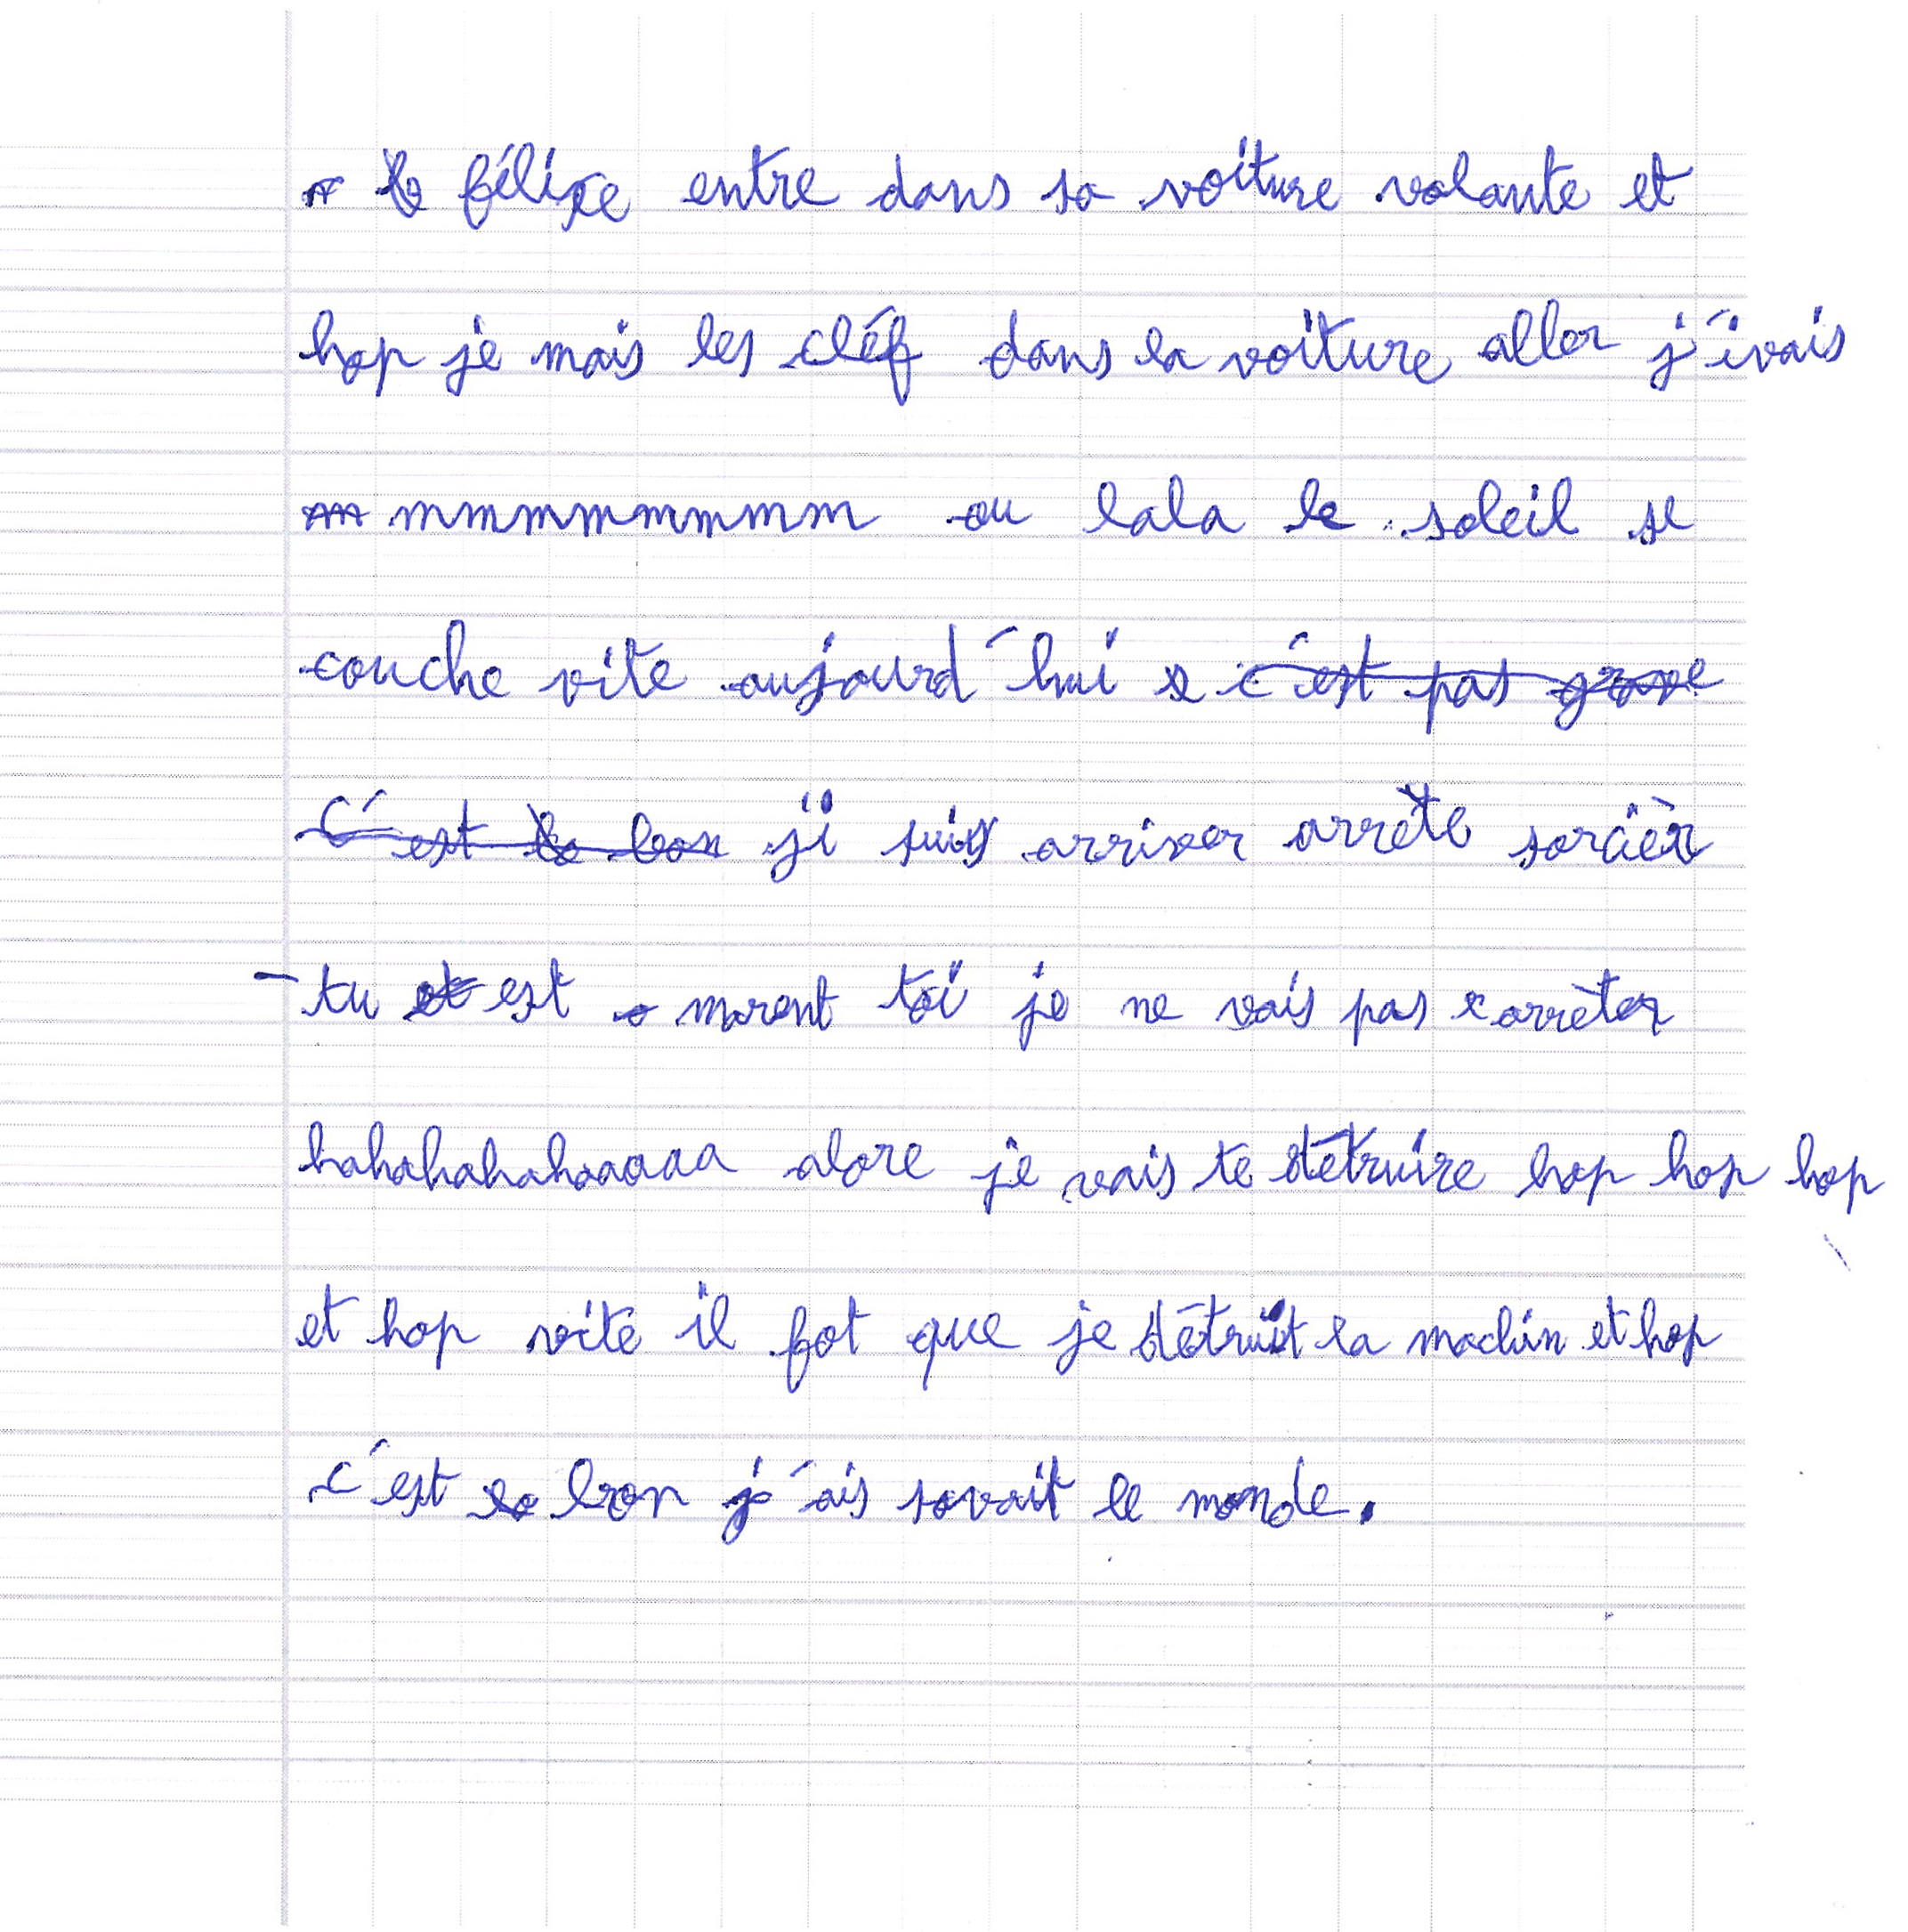 félixe entre dans sa voiture volante et
hop je mais les cléf dans la voiture aller j'ivais
mmmmmmmmm ou lala le soleil se
couche vite aujourd'hui c'est pas grave
c'est le bon ji suis arriver arrète sorcièr
- tu est marent toi je ne vais pas arrèter
hahahahahaaaaa alore je vais te détruire hop hop hop
et hop vite il fot que je détruit la machin et hop
c'est bon j'ais sovait le monde.